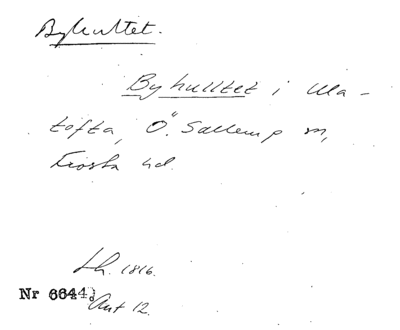 Byhultet.
Byhulltet i Ula-
tofta, Ö. Sallerup sn,
Frosta hd.
Lh. 1816.
Nr 6644)
Akt 12.